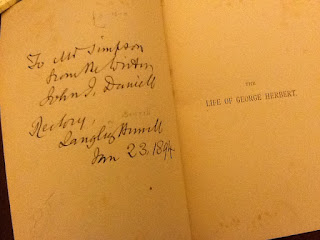 To Mr Simpson
from the Writer
John J. Daniell
Rectory,
Langley Burrell
Jan 23. 1894.
THE
LIFE OF GEORGE HERBERT.